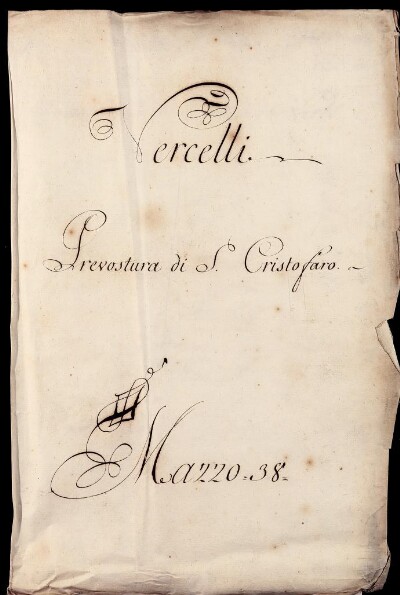 Vercelli.
Prevostura di S. Cristofaro.
Mazzo = 38 =